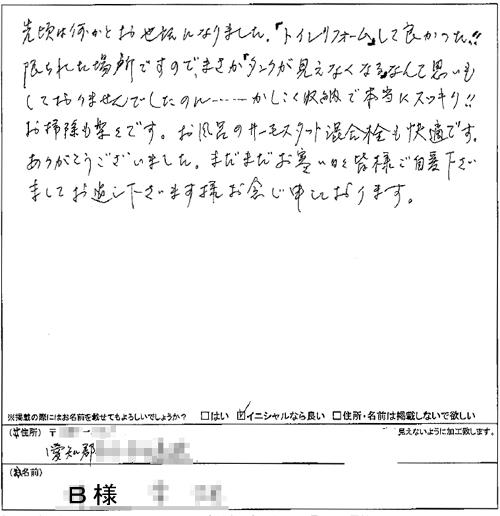 先頃は何かとお世話になりました。『トイレリフォーム』して良かった!!
限られた場所ですのでまさか『タンクが見えなくなる』なんて思いも
しておりませんでしたのに……かしこく収納で本当にスッキリ!!
お掃除も楽々です。お風呂のサーモスタット混合栓も快適です。
ありがとうございました。まだまだお寒い日々皆様ご自愛下さい
ましてお過し下さいます様お念じ申しております。
※掲載の際にはお名前を載せてもよろしいでしょうか? □はい ☑イニシャルなら良い □住所・名前は掲載しないで欲しい
(ご住所) 〒 - 見えないように加工致します。
愛知郡
(お名前)
B 様